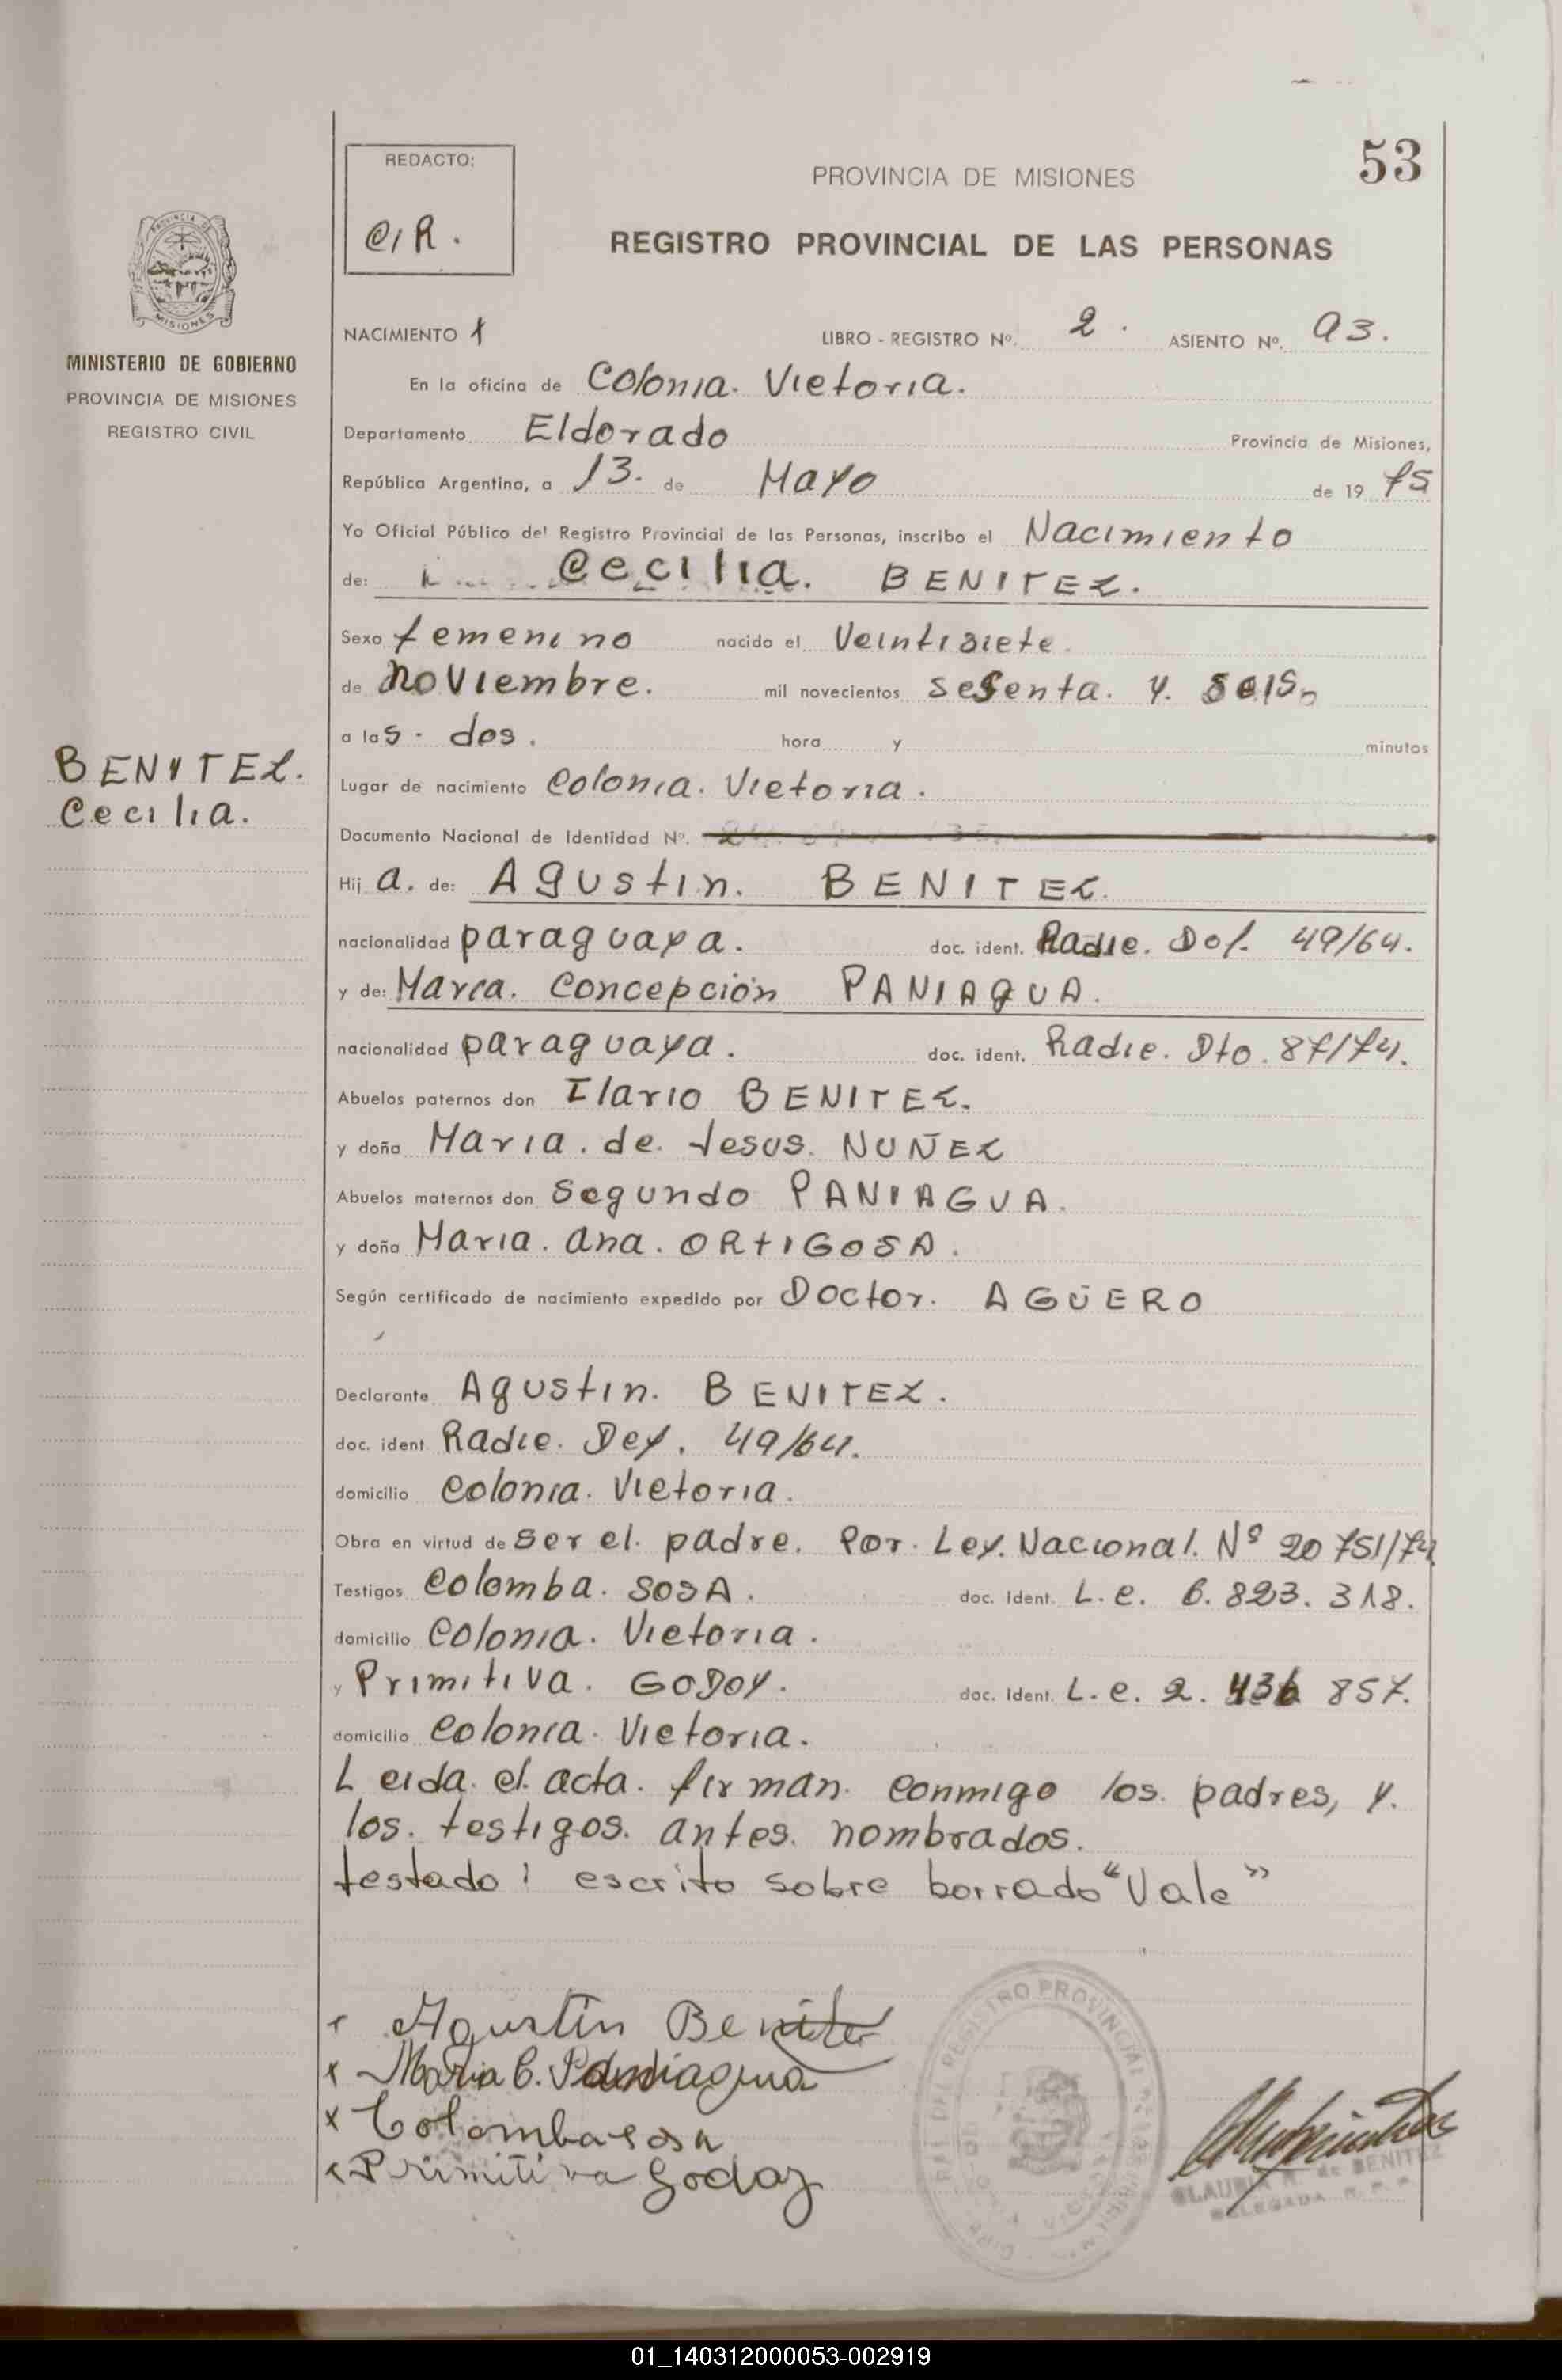 53
REDACTO:
C/R.
PROVINCIA DE MISIONES
REGISTRO PROVINCIAL DE LAS PERSONAS
MISIONES
MINISTERIO DE GOBIERNO
PROVINCIA DE MISIONES
REGISTRO CIVIL
NACIMIENTO LIBRO - REGISTRO Nº. 2. ASIENTO Nº. 93.
En la oficina de Colonia. Victoria.
Departamento Eldorado Provincia de Misiones,
República Argentina, a 13. de Mayo de 19 75
Yo Oficial Público del Registro Provincial de las Personas, inscribo el Nacimiento
de: Cecilia. BENITEZ.
Sexo femenino nacido el Veintisiete.
de noviembre. mil novecientos sesenta. y. seis.
a las. dos. hora y minutos
BENITEZ.
Cecilia.
Lugar de nacimiento Colonia. Victoria.
Documento Nacional de Identidad Nº.
Hij a. de: Agustin. BENITEZ.
nacionalidad paraguaya. doc. ident. Radic. Def. 49/64.
y de: Maria. Concepción PANIAGUA.
nacionalidad paraguaya. doc. ident. Radic. Dto. 87/74.
Abuelos paternos don Ilario BENITEZ.
y doña Maria. de. Jesus. NUÑEZ
Abuelos maternos don Segundo PANIAGUA.
y doña Maria. Ana. ORTIGOSA.
Según certificado de nacimiento expedido por Doctor. AGÜERO
Declarante Agustin. BENITEZ.
doc. ident. Radic. Def. 49/64.
domicilio Colonia. Victoria.
Obra en virtud de ser el. padre. Por. Ley. Nacional. Nº 20751/74
Testigos Colomba. SOSA. doc. Ident. L.e. 6.823.318.
domicilio Colonia. Victoria.
y Primitiva. GODOY. doc. Ident. L.e. 2. 436 857.
domicilio Colonia. Victoria.
Leida. el. acta. firman. conmigo los. padres, y.
los. testigos. antes. nombrados.
testado: escrito sobre borrado "Vale"
x Agustin Benitez
x Maria C. Paniagua
x Colomba sosa
x Primitiva Godoy
REGISTRO PROVINCIAL
de BENITEZ
DELEGADA R. P. P.
01_140312000053-002919